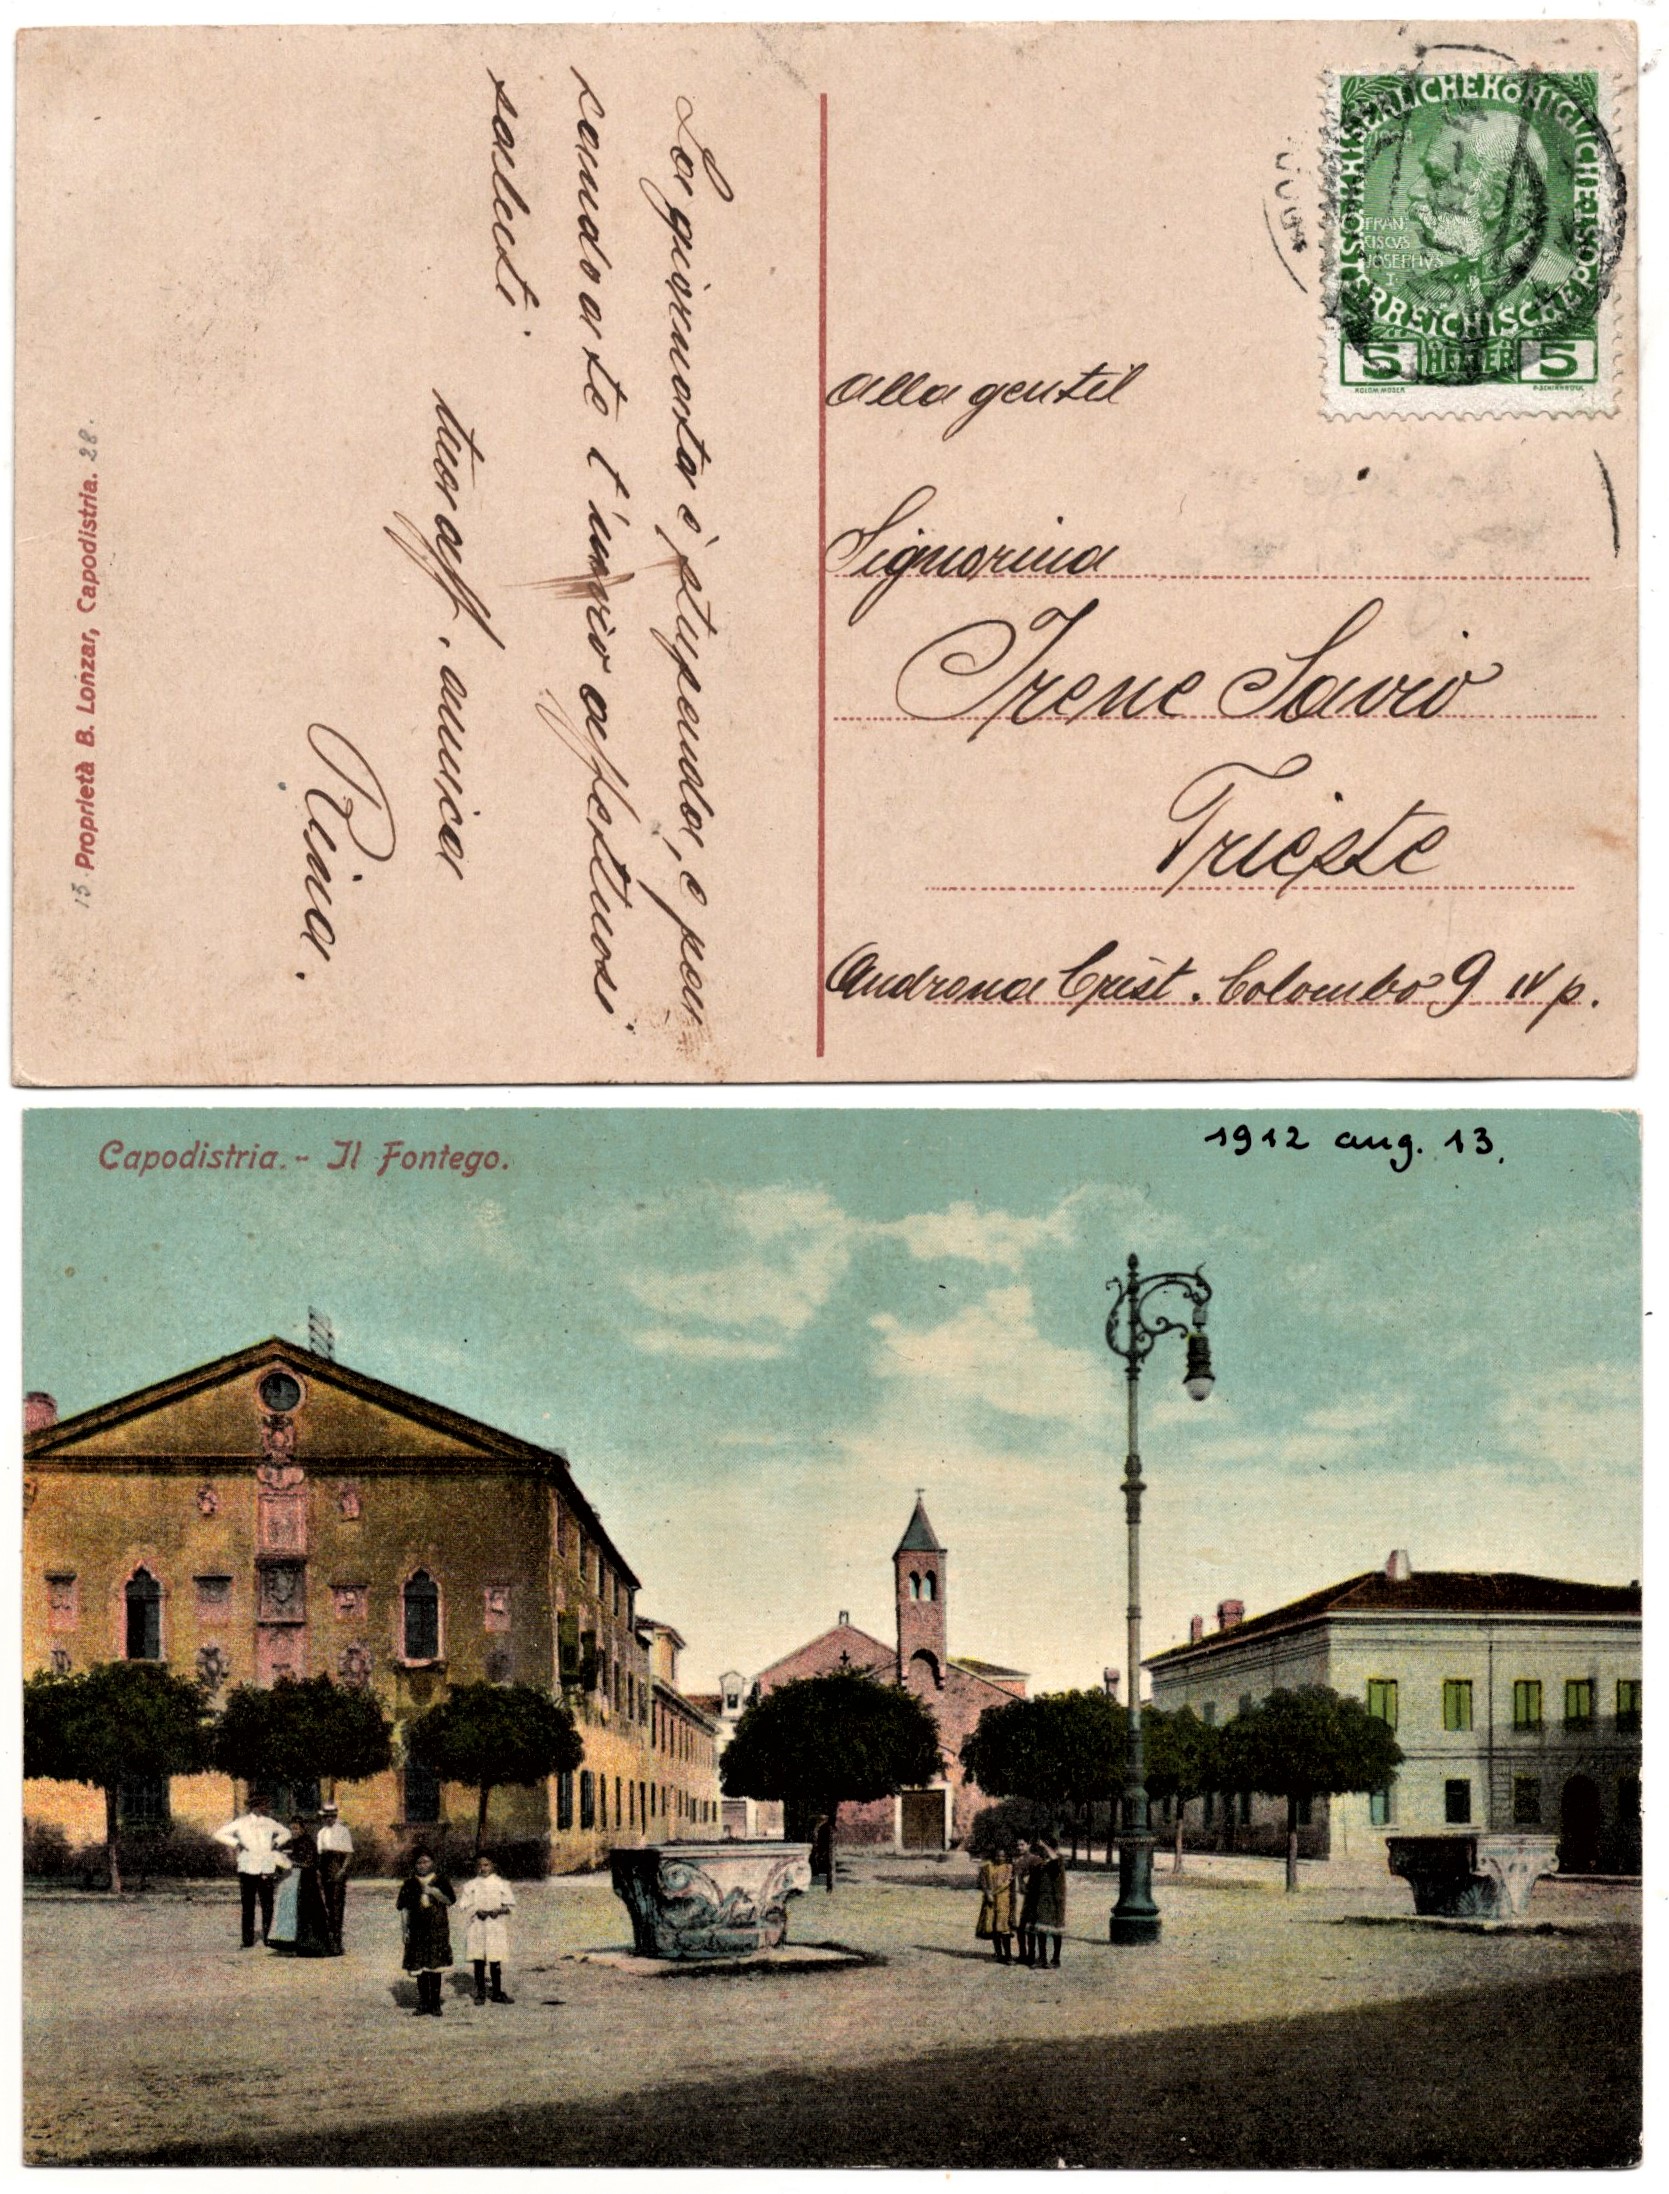 La giornata è stupenda, e pen
sando a te t'invio affettuosi
saluti.
tua aff. amica
Rina.
Proprietà B. Lonzar, Capodistria. 28.
13
KAISERLICHE KÖNIGLICHE POST
ÖSTERREICHISCHE
1908
FRAN
CISCVS
JOSEPHVS
I
5 HELLER 5
KOLOM. MOSER
F. SCHIRNBÖCK
alla gentil
Signorina
Irene Savio
Trieste
Androna Crist. Colombo 9 IV p.
Capodistria. - Il Fontego.
1912 aug. 13.